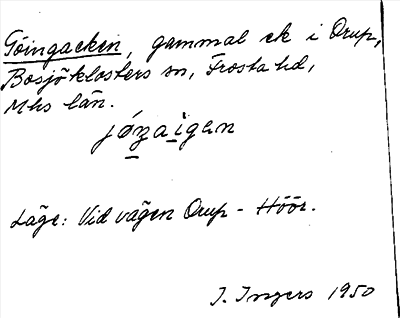 Göingaeken, gammal ek i Orup,
Bosjöklosters sn, Frosta hd,
Mhs län.
józaigan
Läge: Vid vägen Orup - Höör.
I. Ingers 1950